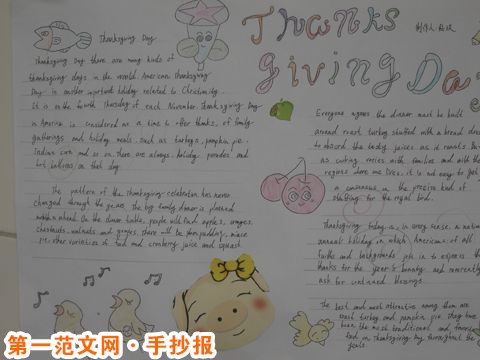 Thanks
giving Da
Thanksgiving Day
Thanksgiving Day there are many kinds of
thanksgiving days in the world. American thanksgiving
Day is another important holiday related to Christianity.
It is on the fourth Thursday of each November. thanksgiving Day
in America is considered as a time to offer thanks, of family
gatherings and holiday meals. such as turkeys, pumpkin pie.
Indian corn and so on. There are always holiday parades and
hot balloons on that day.
The pattern of the thanksgiving celebration has never
changed through the years. The big family dinner is planned
months ahead. On the dinner table, people will find apples, oranges,
chestnuts, walnuts and grapes. there will be plum pudding, mince
pie, other varieties of food and cranberry juice and squash.
制作人:
Everyone agrees the dinner must be built
around roast turkey stuffed with a bread dres
to absorb the tasty juices as it roasts. Bu
as cooking varies with families and with the
regions where one lives, it is not easy to get
a consensus on the precise kind of
stuffing for the royal bird.
Thanksgiving today is, in every sense, a nation
annual holiday on which Americans of all
faiths and backgrounds join in to express the
thanks for the year's bounty and reverently
ask for continued blessings.
The best and most attractive among them are
roast turkey and pumpkin pie. they have
been the most traditional and favorite
food on Thanksgiving Day throughout the
第一范文网·手抄报